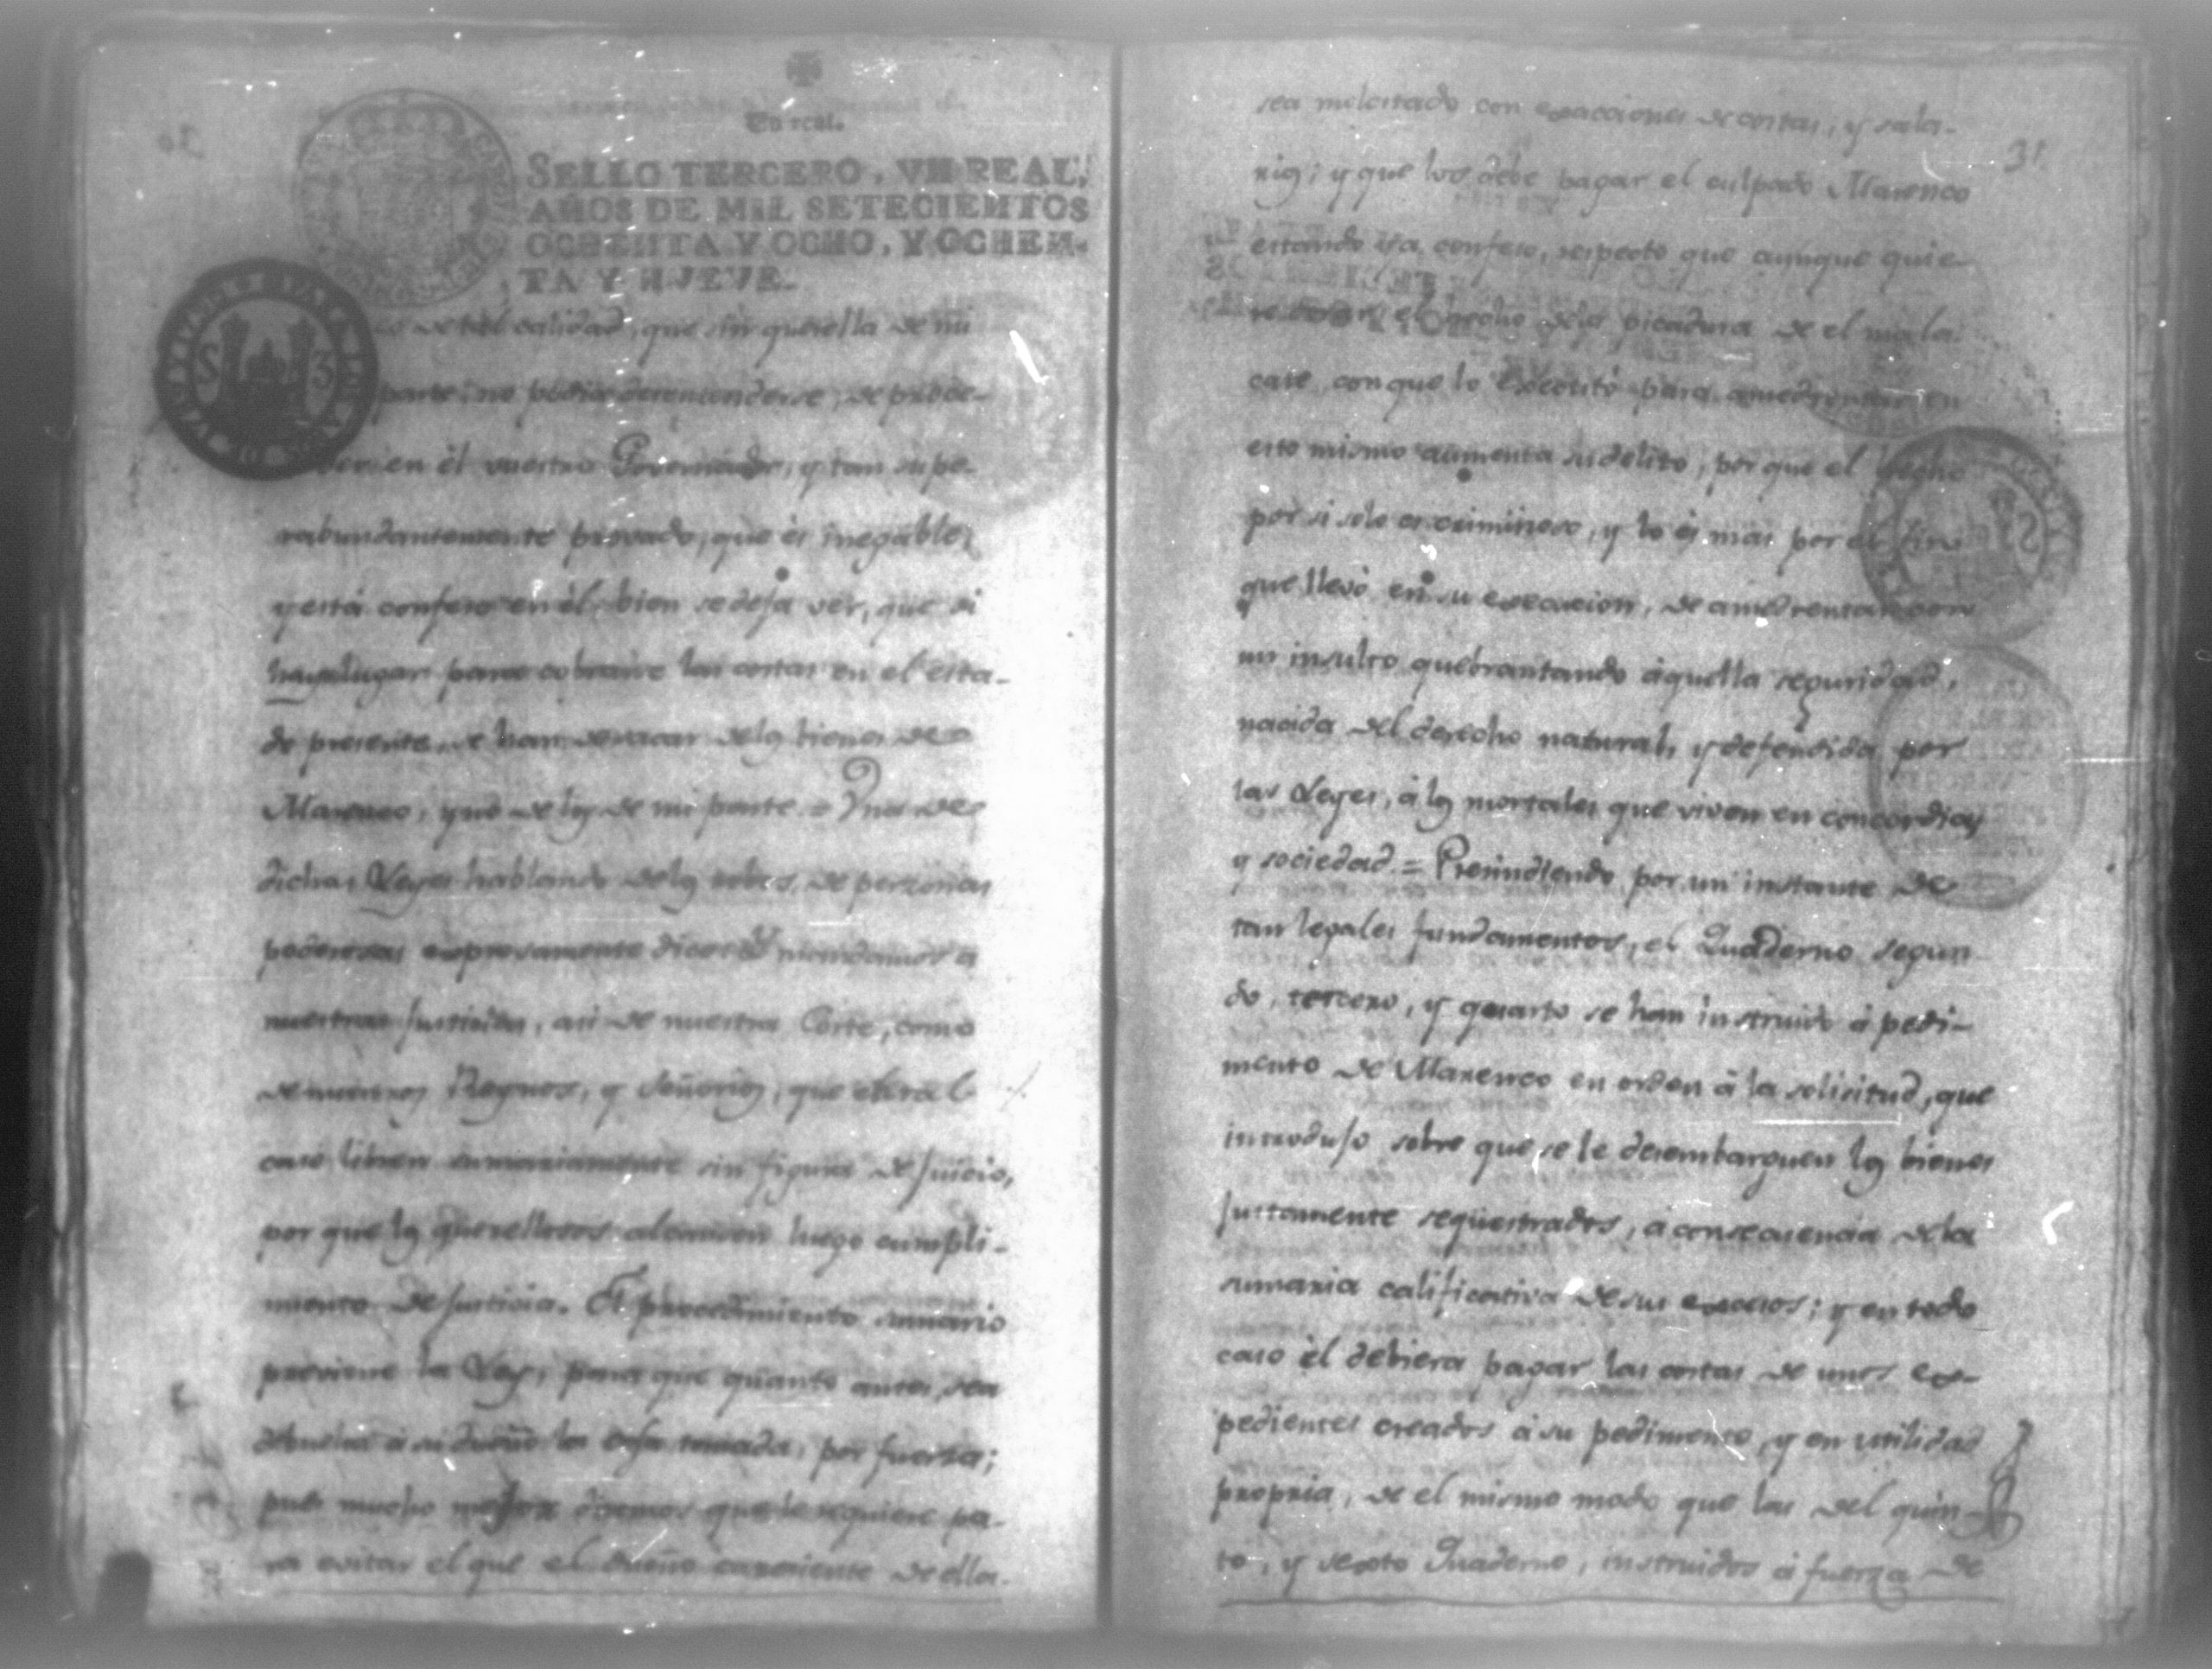 Un real.
SELLO TERCERO, VN REAL,
AÑOS DE MIL SETECIENTOS
OCHENTA Y OCHO, Y OCHEN-
TA Y NUEVE.
de tal calidad, que sin querella de mi
parte, no podia desentenderse, de proce-
der en èl vuestro Governador, y tan supe-
rabundantemente provado, que ès inegable,
y està confeso en èl, bien se deja ver, que si
hay lugar para cobrarse las costas en el esta-
do presente, se han de sacar delos bienes de
Marenco, y no de los de mi parte = Una de
dichas Leyes hablando delos robos de personas
poderosas expresamente dice: mandamos a
nuestras Justicias, asi de nuestra Corte, como
de nuestros Reynos, y Señorios, que
caso libren sumariamente sin figura de Juicio,
por que los querellosos alcancen luego cumpli-
miento de Justicia. El procedimiento sumario
previene la Ley, para que quanto antes, sea
debuelta a su dueño la cosa tomada, por fuerza;
pues mucho mejor diremos que le requiere pa-
ra evitar el que el dueño de ella.
31.
sea molestado con exacciones de costas, y sala-
rios; y que los debe pagar el culpado Marenco
estando ya confeso, respecto que aunque quie-
re el hecho dela picadura de el mala-
cate, con que lo Executò para amedrentar, en
esto mismo aumenta su delito, por que el hecho
por si solo es criminoso, y lo ès mas por el fin
que llevò en su execucion, de amedrentar con
un insulto quebrantando àquella seguridad,
nacida del derecho natural, y defendida por
las Leyes, à los mortales que viven en concordia,
y sociedad. = Presindiendo por un instante de
tan legales fundamentos, el Quaderno segun-
do, tercero, y quarto se han instruido à pedi-
mento de Marenco en orden à la solicitud, que
introdujo sobre que se le desembarguen los bienes
justamente seqüestrados, a consecuencia dela
sumaria calificativa de sus excesos; y en todo
caso èl debiera pagar las costas de unos ex-
pedientes creados à su pedimento, y en utilidad
propria, de el mismo modo que las del quin-
to, y sexto Quaderno, instruidos à fuerza de